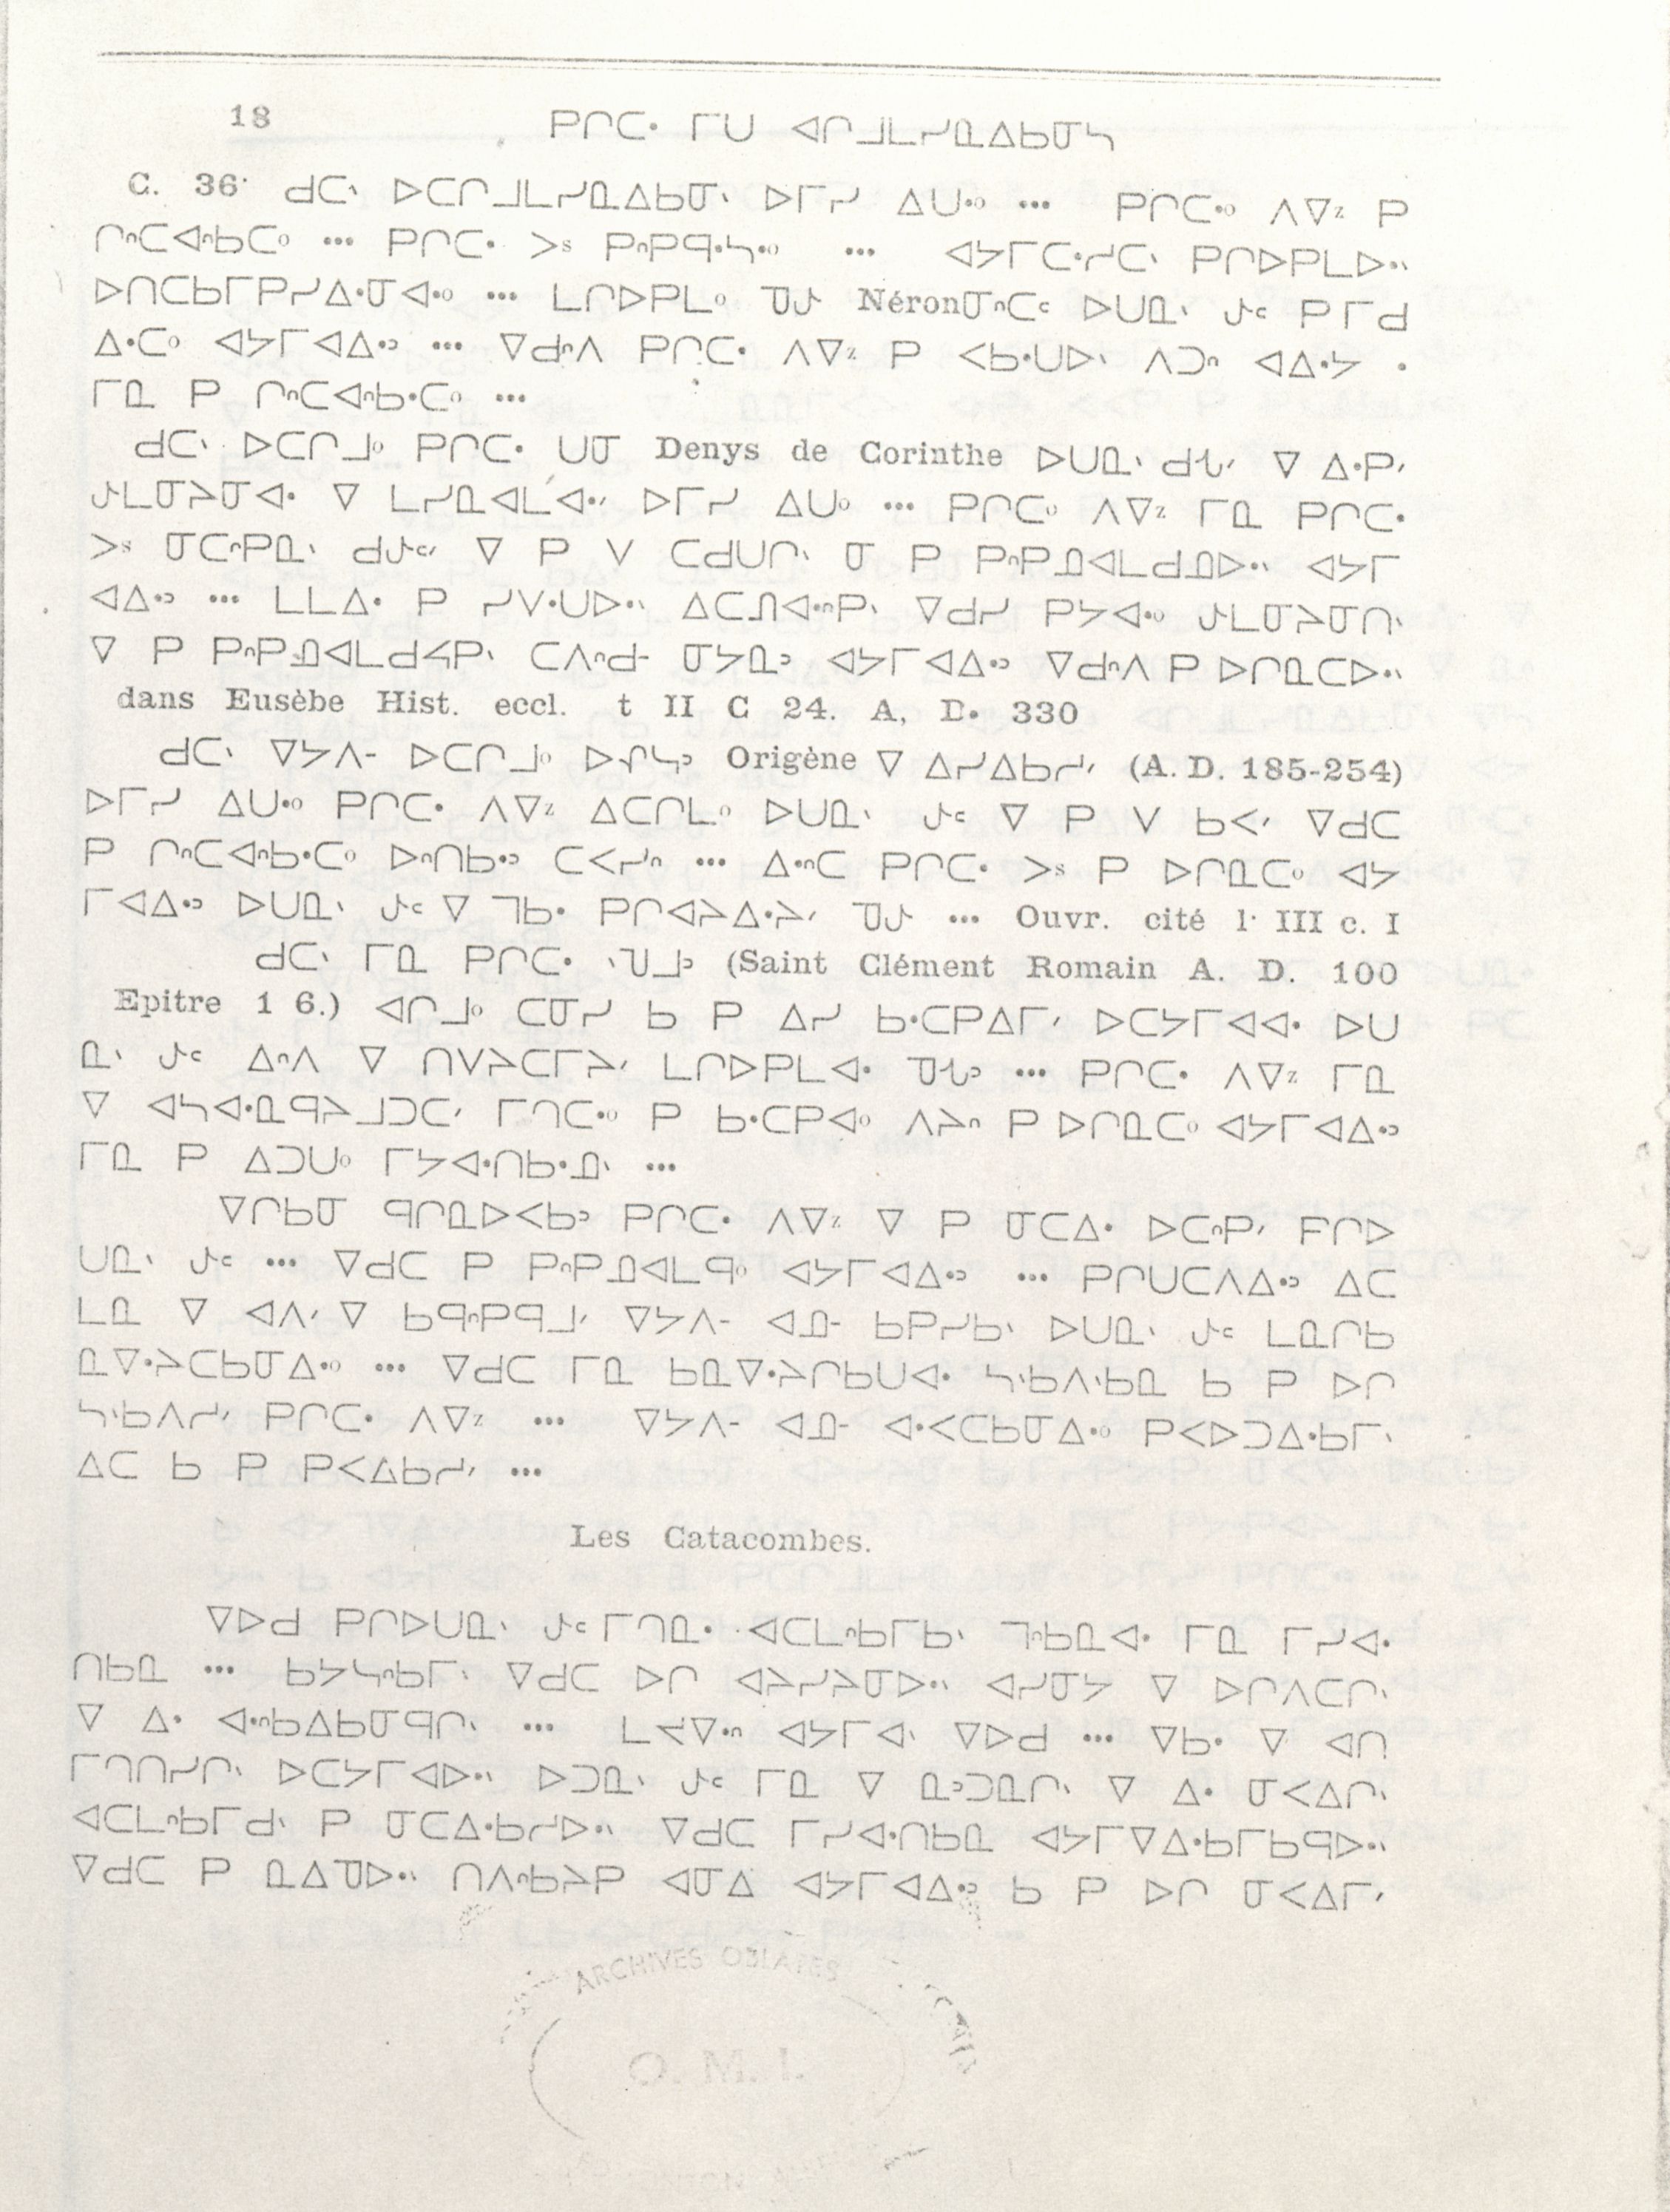 18 ᑭᒋᑕᐧ ᒥᑌ ᐊᒋᒧᒪᓯᓇᐃᑲᓂᓴ
C. 36 ᑯᑕᐠ ᐅᑕᒋᒧᒪᓯᓇᐃᑲᓂᐠ ᐅᒥᓯ ᐃᑌᐧᐤ ... ᑭᒋᑕᐧᐤ ᐱᐁᶻ ᑭ
ᒋᐢᑕᐊᐢᑲᑕᐤ ... ᑭᒋᑕᐧ ᐳˢ ᑭᐢᑭᑫᐧᓴᐧᐤ ... ᐊᔭᒥᑕᐧᓱᑕᐠ ᑭᒋᐅᑭᒪᐅᐧᐠ
ᐅᑎᑕᑲᒥᑭᓯᐃᐧᓂᐊᐧᐤ ... ᒪᒋᐅᑭᒪᐤ ᓀᓗ Néronᓂᐢᑕᶜ ᐅᑌᓇᐠ ᓗᶜ ᑭ ᒥᑯ
ᐃᐧᑕᐤ ᐊᔭᒥᐊᐃᐧᐣ ... ᐁᑯᐢᐱ ᑭᒋᑕᐧ ᐱᐁᶻ ᑭ ᐸᑲᐧᑌᐅᐠ ᐱᑐᐢ ᐊᐃᐧᔭ
ᒥᓇ ᑭ ᒋᐢᑕᐊᐢᑲᐧᑕᐤ ...
ᑯᑕᐠ ᐅᑕᒋᒧᐤ ᑭᒋᑕᐧ ᑌᓂ Denys de Corinthe ᐅᑌᓇᐠ ᑯᓓᐟ ᐁ ᐃᐧᑭᐟ
ᓗᒪᓂᔨᓂᐊᐧ ᐁ ᒪᓯᓇᐊᒪᐊᐧᐟ ᐅᒥᓯ ᐃᑌᐤ ... ᑭᒋᑕᐤ ᐱᐁᶻ ᒥᓇ ᑭᒋᑕᐧ
ᐳˢ ᓂᑕᐢᑭᓇᐠ ᑯᓗᶜᐟ ᐁ ᑭ ᐯ ᑕᑯᑌᒋᐠ ᓂ ᑭ ᑭᐢᑭᓄᐊᒪᑯᓄᐅᐧᐠ ᐊᔭᒥ
ᐊᐃᐧᐣ ... ᒪᒪᐃᐧ ᑭ ᓯᐯᐧᑌᐅᐧᐠ ᐃᑕᓕᐊᐧᐢᑭᐠ ᐁᑯᓯ ᑭᔭᐊᐧᐤ ᓗᒪᓂᔨᓂᑎᐠ
ᐁ ᑭ ᑭᐢᑭᓄᐊᒪᑯᔦᑭᐠ ᑕᐱᐢᑯ- ᓂᔭᓇᐣ ᐊᔭᒥᐊᐃᐧᐣ ᐁᑯᐢᐱ ᑭ ᐅᒋᓇᑕᐅᐧᐠ
dans Eusèbe Hist. eccl. t II C 24. A, D. 330
ᑯᑕᐠ ᐁᔭᐱ- ᐅᑕᒋᒧᐤ ᐅᕒᓴᐣ Origène ᐁ ᐃᓯᐃᑲᓱᐟ (A. D. 185-254)
ᐅᒥᓯ ᐃᑌᐧᐤ ᑭᒋᑕᐧ ᐱᐁᶻ ᐃᑕᒋᒪᐤ ᐅᑌᓇᐠ ᓗᶜ ᐁ ᑭ ᐯ ᑲᐸᐟ ᐁᑯᑕ
ᑭ ᒋᐢᑕᐊᐢᑲᐧᑕᐤ ᐅᐢᑎᑲᐧᐣ ᑕᐸᓯᐢ ... ᐃᐧᐢᑕ ᑭᒋᑕᐧ ᐳˢ ᑭ ᐅᒋᓇᑕᐤ ᐊᔭ
ᒥᐊᐃᐧᐣ ᐅᑌᓇᐠ ᓗᶜ ᐁ ᒣᑲᐧ ᑭᒋᐊᔨᐃᐧᔨᐟ ᓀᓗ ... Ouvr. cité l' III c. I
ᑯᑕᐠ ᒥᓇ ᑭᒋᑕᐧ ᐠᓓᒧᐣ (Saint Clément Romain A. D. 100
Epitre 1 6.) ᐊᒋᒧᐤ ᑕᓂᓯ ᑲ ᑭ ᐃᓯ ᑲᐧᑕᑭᐃᒥᐟ ᐅᑕᔭᒥᐊᐊᐧ ᐅᑌ
ᓇᐠ ᓗᶜ ᐃᐢᐱ ᐁ ᑎᐯᔨᑕᒥᔨᐟ ᒪᒋᐅᑭᒪᐊᐧ ᓀᓗᐣ ... ᑭᒋᑕᐧ ᐱᐁᶻ ᒥᓇ
ᐁ ᐊᓴᐊᐧᓇᑫᔨᒧᑐᑕᐟ ᒥᐢᑕᐧᐤ ᑭ ᑲᐧᑕᑭᐊᐤ ᐱᔨᐢ ᑭ ᐅᒋᓇᑕᐤ ᐊᔭᒥᐊᐃᐧᐣ
ᒥᓇ ᑭ ᐃᑐᑌᐤ ᒥᔭᐊᐧᑎᑲᐧᓄᐠ ...
ᐁᒋᑲᓂ ᑫᒋᓇᐅᐸᑲᐣ ᑭᒋᑕᐧ ᐱᐁᶻ ᐁ ᑭ ᓂᑕᐃᐧ ᐅᑕᐢᑭᐟ ᑭᒋᐅ
ᑌᓇᐠ ᓗᶜ ... ᐁᑯᑕ ᑭ ᑭᐢᑭᓄᐊᒪᑫᐤ ᐊᔭᒥᐊᐃᐧᐣ ... ᑭᒋᑌᑕᐱᐃᐧᐣ ᐃᑕ
ᒪᓇ ᐁ ᐊᐱᐟ ᐁ ᑲᑫᐢᑭᑫᒧᐟ ᐁᔭᐱ- ᐊᓄ- ᑲᑭᓯᑲᐠ ᐅᑌᓇᐠ ᓗᶜ ᒪᓇᒋᑲ
ᓇᐁᐧᔨᑕᑲᓂᐃᐧᐤ ... ᐁᑯᑕ ᒥᓇ ᑲᓇᐁᐧᔨᒋᑲᑌᐊᐧ ᓴᐠᑲᐱᐠᑲᓇ ᑲ ᑭ ᐅᒋ
ᓴᐠᑲᐱᓱᐟ ᑭᒋᑕᐧ ᐱᐁᶻ ... ᐁᔭᐱ- ᐊᓄ- ᐊᐧᐸᑕᑲᓂᐃᐧᐤ ᑭᐸᐅᑐᐃᐧᑲᒥᐠ
ᐃᑕ ᑲ ᑭ ᑭᐸᐃᑲᓱᐟ ...
Les Catacombes.
ᐁᐅᑯ ᑭᒋᐅᑌᓇᐠ ᓗᶜ ᒥᑎᓇᐧ ᐊᑕᒪᐢᑲᒥᑲᐠ ᒣᐢᑲᓇᐊᐧ ᒥᓇ ᒥᓯᐊᐧ
ᑎᑲᓇ ... ᑲᔭᓴᐢᑲᒥᐠ ᐁᑯᑕ ᐅᒋ ᐊᔨᓯᔨᓂᐅᐧᐠ ᐊᓯᓂᔭ ᐁ ᐅᒋᐱᑕᒋᐠ
ᐁ ᐃᐧ ᐊᐧᐢᑲᐃᑲᓂᑫᒋᐠ ... ᒪᔦᐁᐧᐢ ᐊᔭᒥᐊᐠ ᐁᐅᑯ ... ᐁᑲᐧ ᐁ ᐊᑎ
ᒥᑎᑎᓱᒋᐠ ᐅᑕᔭᒥᐊᐅᐧᐠ ᐅᑐᓇᐠ ᓗᶜ ᒥᓇ ᐁ ᓇᐣᑐᓇᒋᐠ ᐁ ᐃᐧ ᓂᐸᐃᒋᐠ
ᐊᑕᒪᐢᑲᒥᑯᐠ ᑭ ᓂᑕᐃᐧᑲᓱᐅᐧᐠ ᐁᑯᑕ ᒥᓯᐊᐧᑎᑲᓇ ᐊᔭᒥᐁᐃᐧᑲᒥᑲᑫᐅᐧᐠ
ᐁᑯᑕ ᑭ ᓇᐃᓀᐅᐧᐠ ᑎᐱᐢᑲᔨᑭ ᐊᓂᐃ ᐊᔭᒥᐊᐃᐧᐣ ᑲ ᑭ ᐅᒋ ᓂᐸᐃᒥᐟ
ARCHIVES OBLATES
O. M. I.